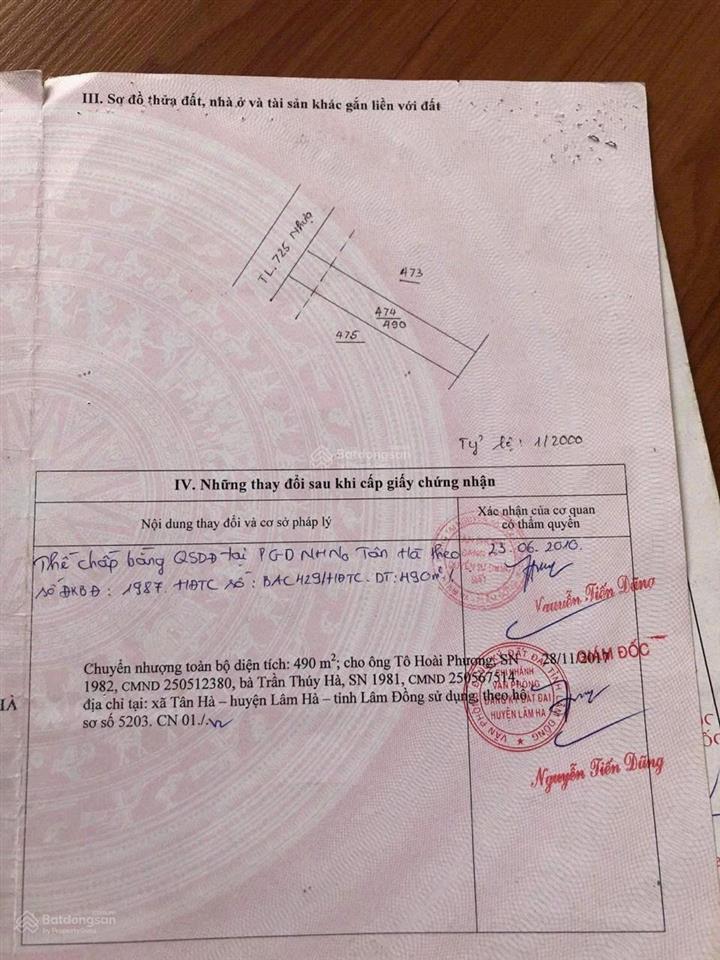 III. Sơ đồ thửa đất, nhà ở và tài sản khác gắn liền với đất
TL. 725 Nhựa
473
474
490
475
Tỷ lệ: 1/2000
Batdongsan
IV. Những thay đổi sau khi cấp giấy chứng nhận
Nội dung thay đổi và cơ sở pháp lý
Xác nhận của cơ quan
có thẩm quyền
Thế chấp bằng QSDĐ tại PGD NHNo Tân Hà theo
số ĐKBĐ: 1987. HĐTC số: BAC429/HĐTC. DT: 490m²/
23.06.2010.
Nguyễn Tiến Dũng
Chuyển nhượng toàn bộ diện tích: 490 m²; cho ông Tô Hoài Phượng, SN
1982, CMND 250512380, bà Trần Thúy Hà, SN 1981, CMND 250567514,
địa chỉ tại: xã Tân Hà – huyện Lâm Hà – tỉnh Lâm Đồng sử dụng, theo hồ
sơ số 5203. CN 01./.
28/11/2017
GIÁM ĐỐC
CHI NHÁNH
VĂN PHÒNG
ĐĂNG KÝ ĐẤT ĐAI
HUYỆN LÂM HÀ
Nguyễn Tiến Dũng
HÀ
Batdongsan
by PropertyGuru